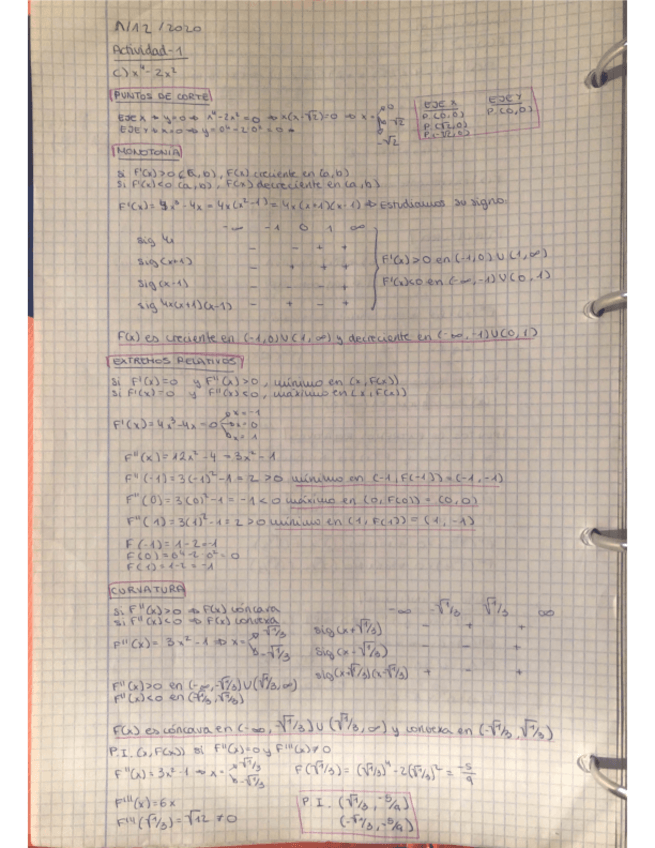 11/12/2020
Actividad-1
c) x⁴-2x²
PUNTOS DE CORTE
EJE X → y=0 → x⁴-2x²=0 → x(x-√2)=0 → x= 0 √2 -√2
EJE Y → x=0 → y=0⁴-2·0²=0
EJE X EJE Y
P.(0,0) P.(0,0)
P.(√2,0)
P.(-√2,0)
MONOTONÍA
Si F'(x)>0 (a,b), F(x) creciente en (a,b)
Si F'(x)<0 (a,b), F(x) decreciente en (a,b)
F'(x)=4x³-4x=4x(x²-1)=4x(x+1)(x-1) → Estudiamos su signo:
-∞ -1 0 1 ∞
sig 4x - - + +
sig(x+1) - + + +
sig(x-1) - - - +
sig 4x(x+1)(x-1) - + - +
F'(x)>0 en (-1,0)U(1,∞)
F'(x)<0 en (-∞,-1)U(0,1)
F(x) es creciente en (-1,0)U(1,∞) y decreciente en (-∞,-1)U(0,1)
EXTREMOS RELATIVOS
Si F'(x)=0 y F''(x)>0, mínimo en (x,F(x))
Si F'(x)=0 y F''(x)<0, máximo en (x,F(x))
F'(x)=4x³-4x=0 x=-1 x=0 x=1
F''(x)=12x²-4=3x²-1
F''(-1)=3(-1)²-1=2>0 mínimo en (-1,F(-1))=(-1,-1)
F''(0)=3(0)²-1=-1<0 máximo en (0,F(0))=(0,0)
F''(1)=3(1)²-1=2>0 mínimo en (1,F(1))=(1,-1)
F(-1)=1-2=-1
F(0)=0⁴-2·0²=0
F(1)=1-2=-1
CURVATURA
Si F''(x)>0 → F(x) cóncava
Si F''(x)<0 → F(x) convexa
F''(x)=3x²-1 → x= √1/3 -√1/3
-∞ -√1/3 √1/3 ∞
sig(x+√1/3) - + +
sig(x-√1/3) - - +
sig(x+√1/3)(x-√1/3) + - +
F''(x)>0 en (-∞,-√1/3)U(√1/3,∞)
F''(x)<0 en (-√1/3,√1/3)
F(x) es cóncava en (-∞,-√1/3)U(√1/3,∞) y convexa en (-√1/3,√1/3)
P.I. (x,F(x)) si F''(x)=0 y F'''(x)≠0
F''(x)=3x²-1 → x= √1/3 -√1/3 F(√1/3)=(√1/3)⁴-2(√1/3)²=-5/9
F'''(x)=6x
F'''(√1/3)=√12≠0
P.I. (√1/3,-5/9)
(-√1/3,-5/9)